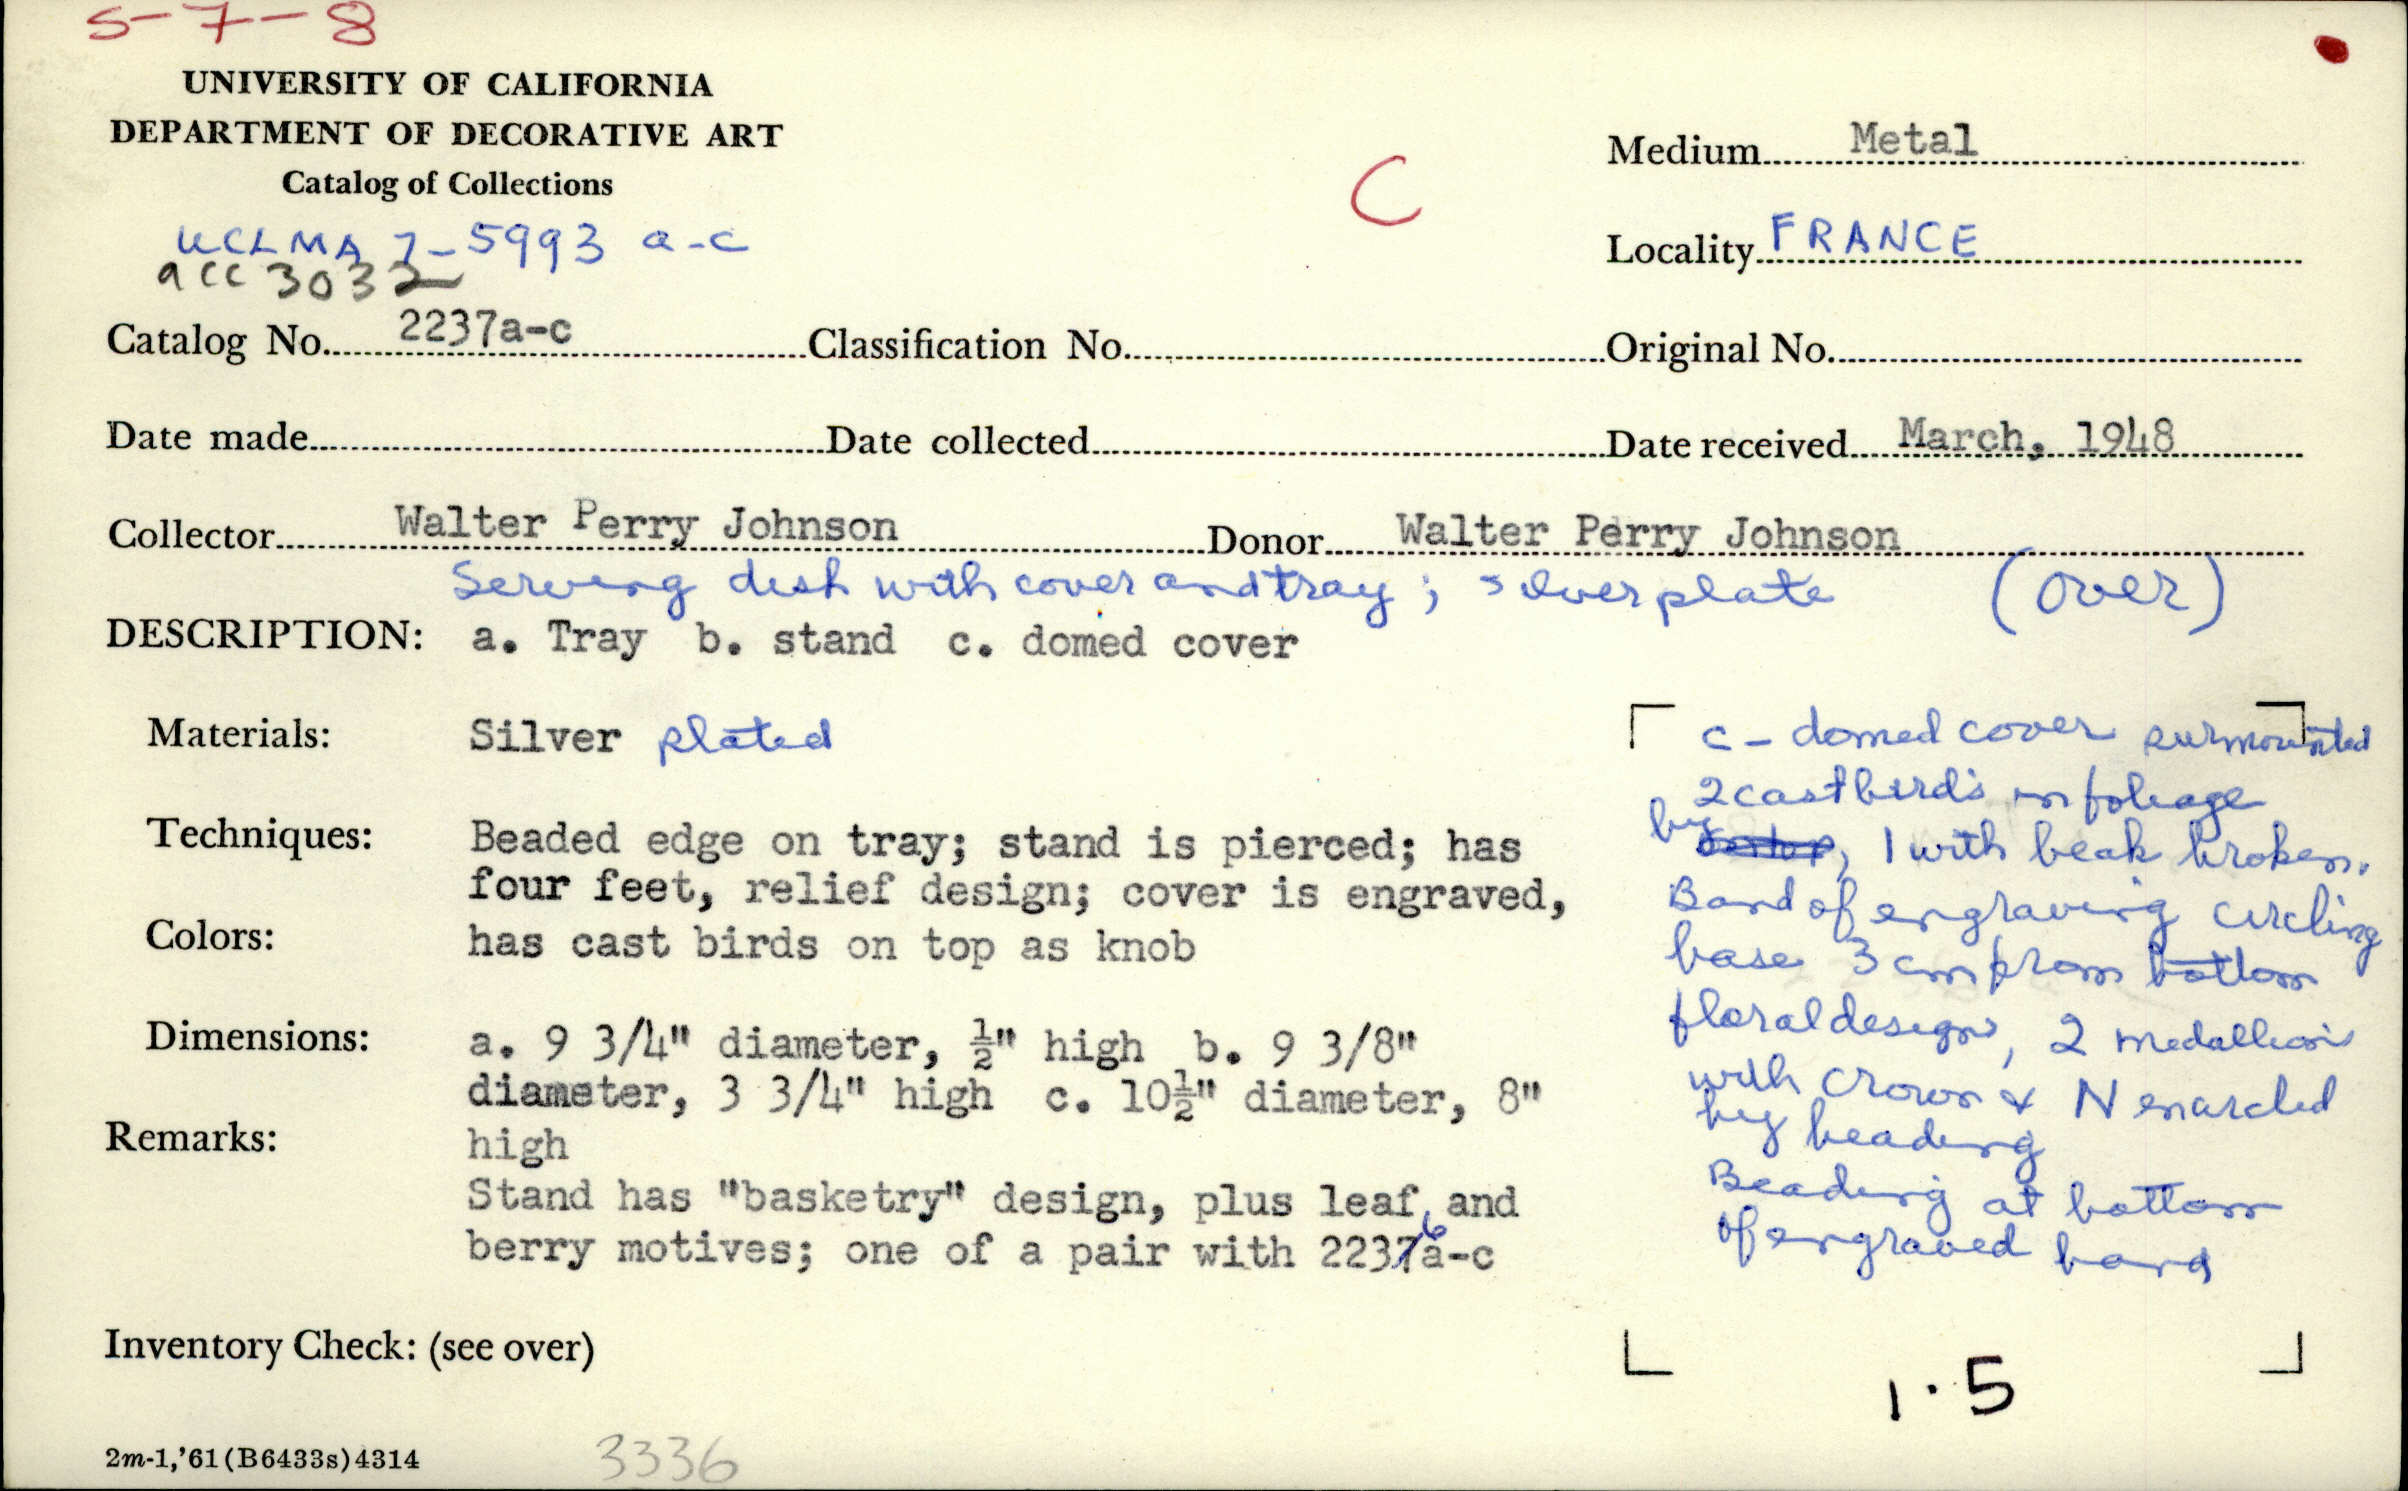 5-7-8
UNIVERSITY OF CALIFORNIA
DEPARTMENT OF DECORATIVE ART
Catalog of Collections
UCLMA 7-5993 a-c
acc 3032
C
Medium Metal
Locality FRANCE
Catalog No. 2237a-c Classification No. Original No.
Date made Date collected Date received March, 1948
Collector Walter Perry Johnson Donor Walter Perry Johnson
Serving dish with cover and tray; silverplate (over)
DESCRIPTION: a. Tray b. stand c. domed cover
Materials: Silver plated
Techniques: Beaded edge on tray; stand is pierced; has
four feet, relief design; cover is engraved,
Colors: has cast birds on top as knob
Dimensions: a. 9 3/4" diameter, ½" high b. 9 3/8"
diameter, 3 3/4" high c. 10½" diameter, 8"
Remarks: high
Stand has "basketry" design, plus leaf and
berry motives; one of a pair with 2237a-c
6
c - domed cover surmounted
2 cast birds in foliage
by , 1 with beak broken.
Band of engraving circling
base 3 cm from bottom
floral design, 2 medallions
with crown & N enarcled
by beading
Beading at bottom
of engraved band
Inventory Check: (see over)
1.5
2m-1,'61(B6433s)4314
3336